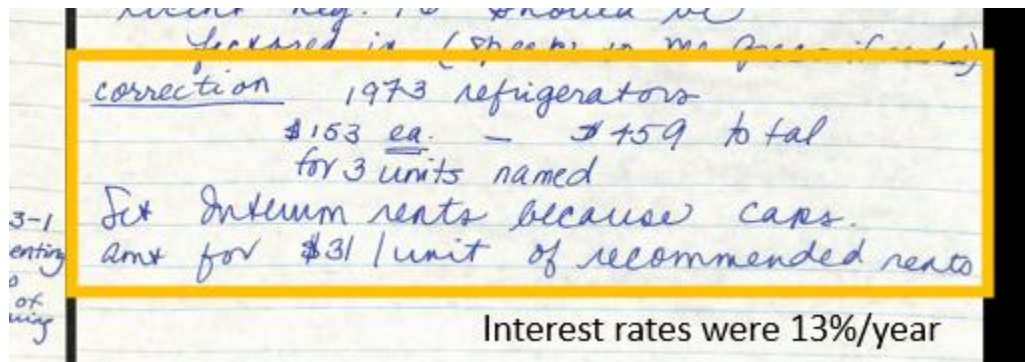 recent Reg. 10 should be
factored in (
correction 1973 refrigerators
$153 ea. – $459 total
for 3 units named
Set Interim rents because caps.
3-1
amt for $31/unit of recommended rents
enting
of
Interest rates were 13%/year